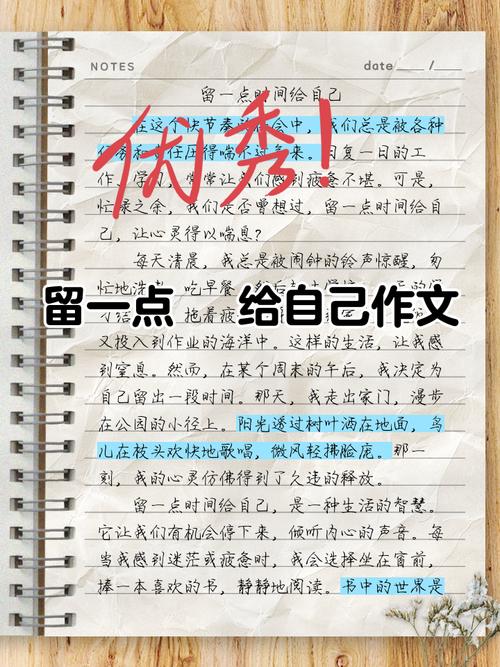 NOTES
date /
留一点时间给自己
优秀!
在这个快节奏 会中,我们总是被各种
任务和责任压得喘不过气来。日复一日的工
作、学习,常常让我们感到疲惫不堪。可是,
忙碌之余,我们是否曾想过,留一点时间给自
己,让心灵得以喘息?
每天清晨,我总是被闹钟的铃声惊醒,匆
忙地洗 吃早餐
留一点 给自己作文
拖着疲
又投入到作业的海洋中。这样的生活,让我感
到窒息。然而,在某个周末的午后,我决定为
自己留出一段时间。那天,我走出家门,漫步
在公园的小径上。阳光透过树叶洒在地面,鸟
儿在枝头欢快地歌唱,微风轻拂脸庞。那一
刻,我的心灵仿佛得到了久违的释放。
留一点时间给自己,是一种生活的智慧。
它让我们有机会停下来,倾听内心的声音。每
当我感到迷茫或疲惫时,我会选择坐在窗前,
捧一本喜欢的书,静静地阅读。书中的世界是